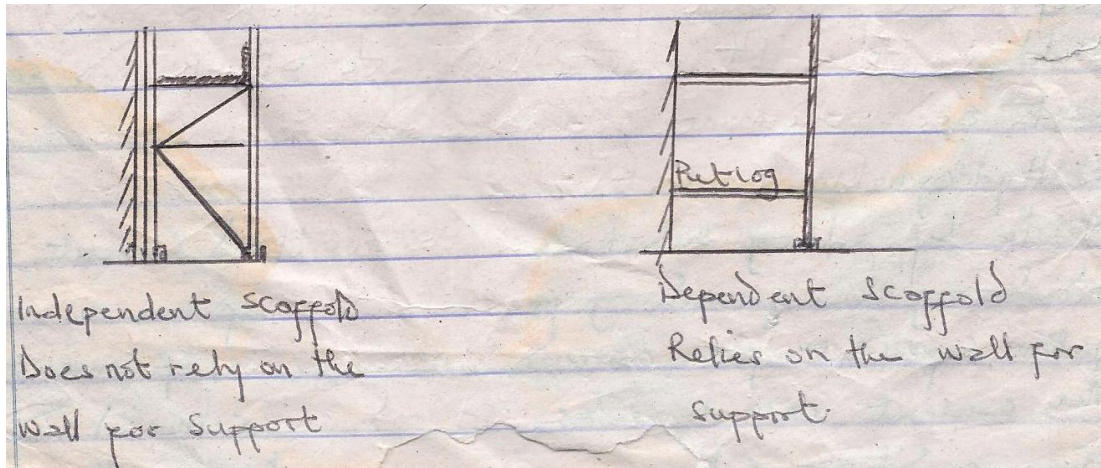 Putlog
Independent scaffold
Does not rely on the
wall for support
Dependent scaffold
Relies on the wall for
support.